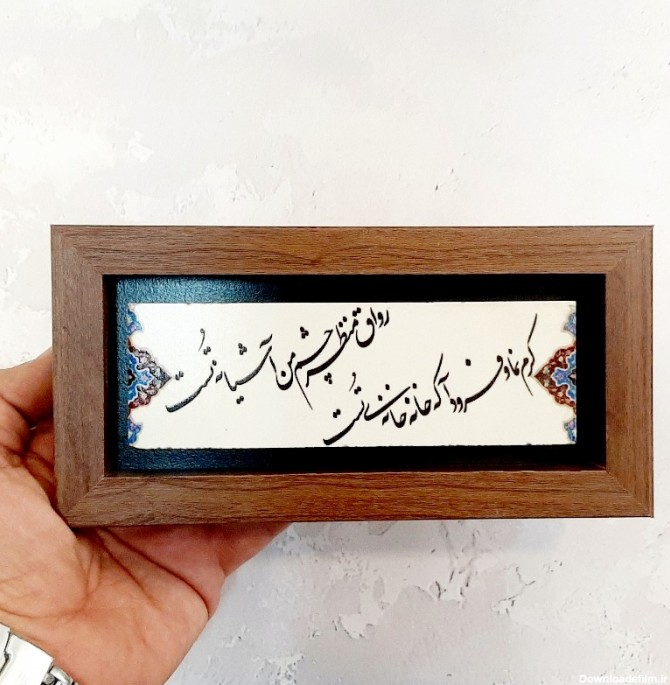 رواق منظر چشم من آشیانه تُست
کرم نما و فرود آ که خانه خانه تُست
Downloadefilm.ir